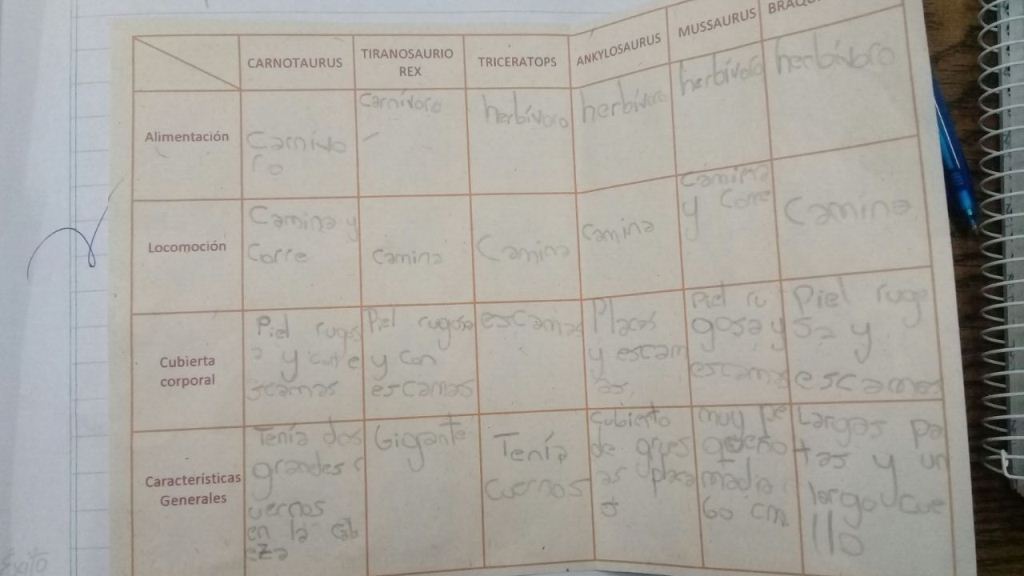 CARNOTAURUS
TIRANOSAURIO
REX
TRICERATOPS
ANKYLOSAURUS
MUSSAURUS
Alimentación
Carnivo
ro
Carnívoro
herbívoro
herbívoro
herbívoro
herbívoro
Locomoción
Camina y
Corre
camina
Camina
camina
camina
y corre
Camina
Cubierta
corporal
Piel rugos
a y con e
scamas
Piel rugosa
y con
escamas
escamas
Placas
y escam
as
Piel ru
gosa y
escamas
Piel rugo
sa y
escamas
Características
Generales
Tenía dos
grandes c
uernos
en la cab
eza
Gigante
Tenía
cuernos
Cubierto
de grues
as placa
s
muy pe
queño
media
60 cm
Largas pa
tas y un
largo cue
llo
Éxito